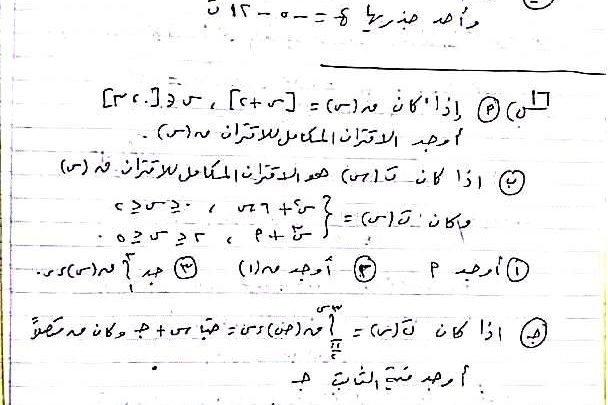 وأحد جذريها ع = - ٥ - ١٢ ت
س٦) (أ) إذا كان ق(س) = [س + ٢] ، س ∈ [٠، ٣]
أوجد الاقتران المكامل للاقتران ق(س).
(ب) اذا كان ت(س) هو الاقتران المكامل للاقتران ق(س)
وكان ت(س) = { س٢ + ٦س ، ٠ ≤ س ≤ ٢
س٣ + أ ، ٢ ≥ س ≥ ٥
(١) أوجد أ (٢) أوجد ق(١) (٣) جد ∫ ق(س) ءس.
(ج) اذا كان ت(س) = ∫ ق(ص) ءص = جتا س + جـ وكان ق متصلاً
أوجد قيمة الثابت جـ